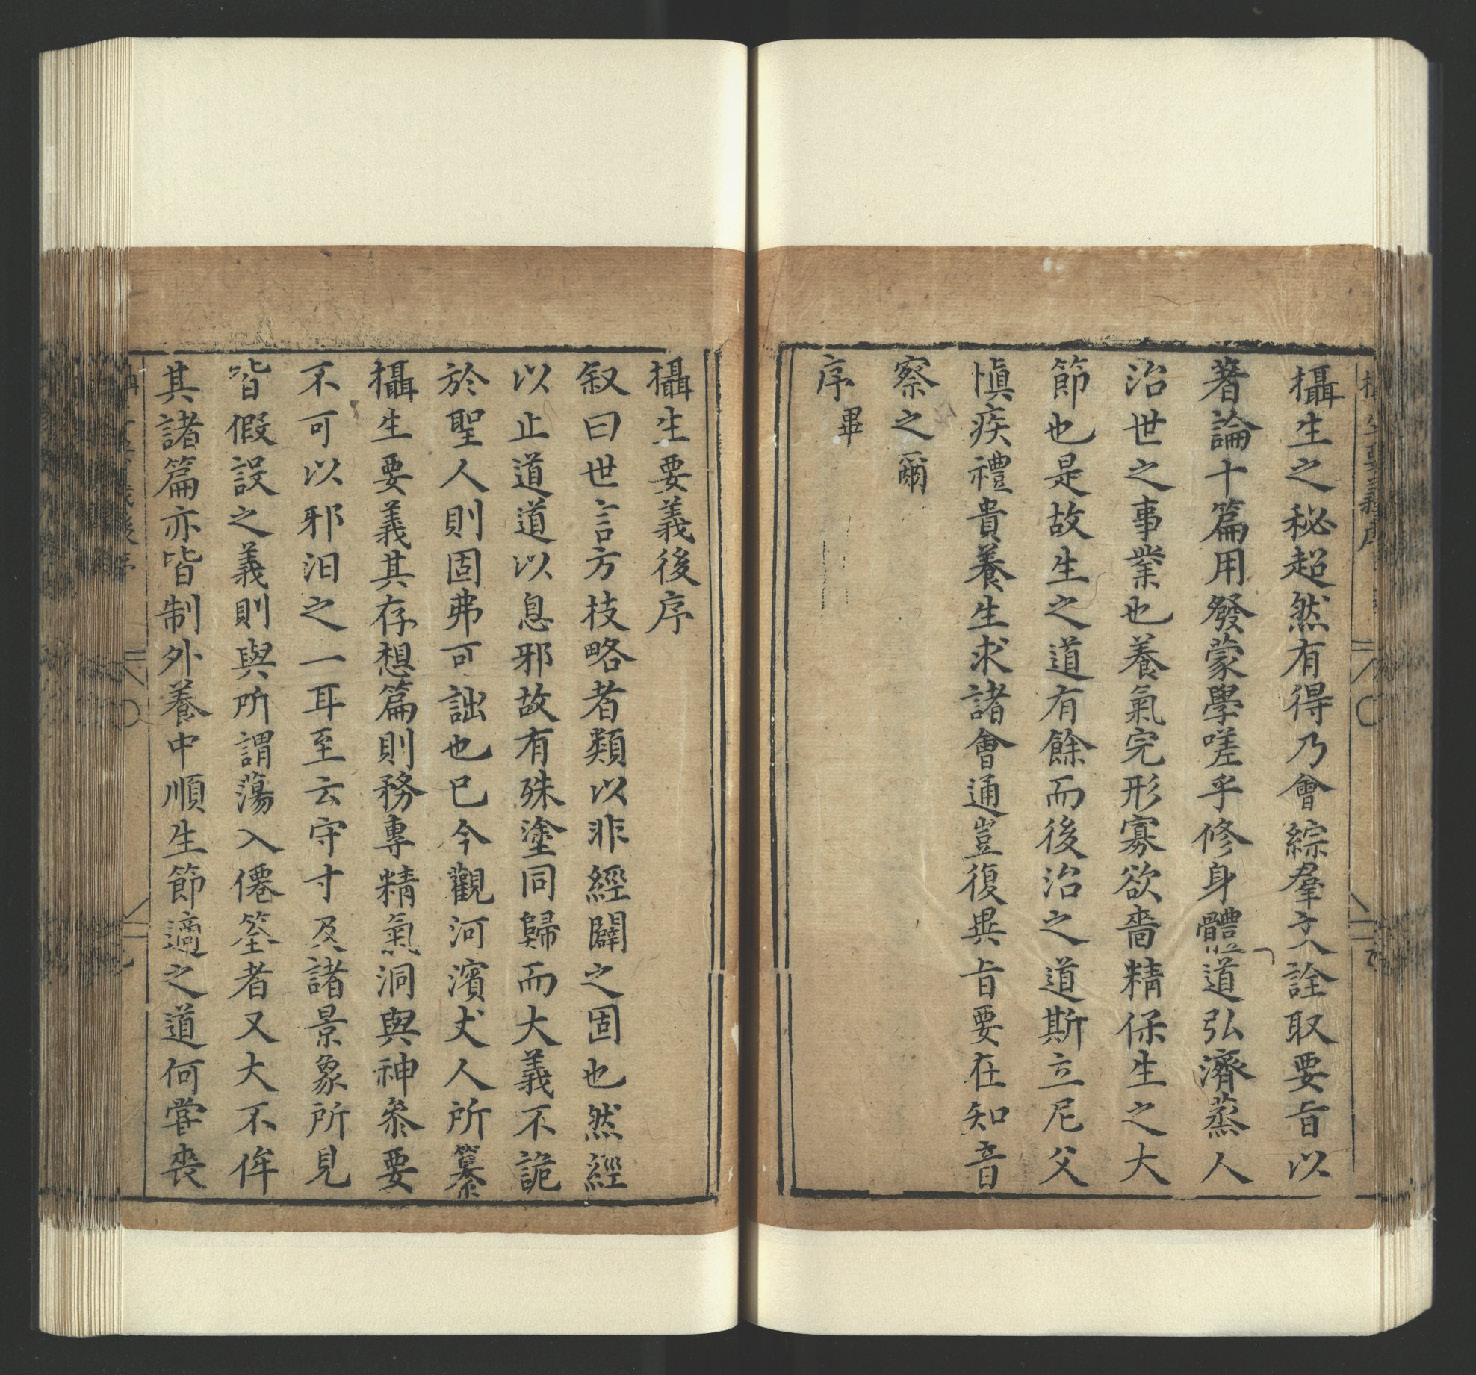 攝生之秘超然有得乃會綜羣文詮取要旨以
著論十篇用發蒙學嗟乎修身體道弘濟蒸人
治世之事業也養氣完形寡欲嗇精保生之大
節也是故生之道有餘而後治之道斯立尼父
慎疾禮貴養生求諸會通豈復異旨要在知音
察之爾
序畢
攝生要義後序
叙曰世言方技略者類以非經闢之固也然經
以止道道以息邪故有殊塗同歸而大義不詭
於聖人則固弗可詘也已今觀河濱丈人所纂
攝生要義其存想篇則務專精氣洞與神叅要
不可以邪汨之一耳至云守寸及諸景象所見
皆假設之義則與所謂蕩入僊筌者又大不侔
其諸篇亦皆制外養中順生節適之道何嘗喪